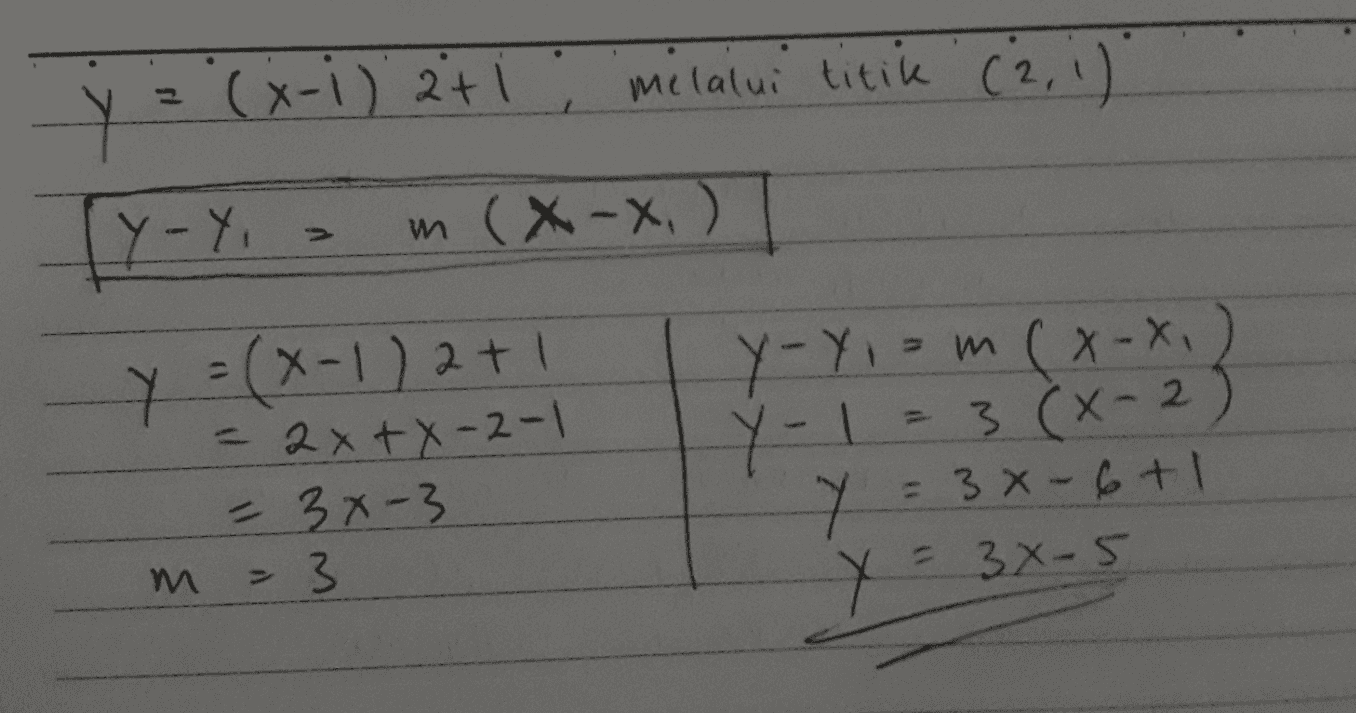 y = (x-1) 2+1, melalui titik (2,1)
y-y₁ = m (x-x₁)
y = (x-1) 2+1
= 2x+x-2-1
= 3x-3
m = 3
y-y₁ = m (x-x₁)
y-1 = 3 (x-2)
y = 3x-6+1
y = 3x-5